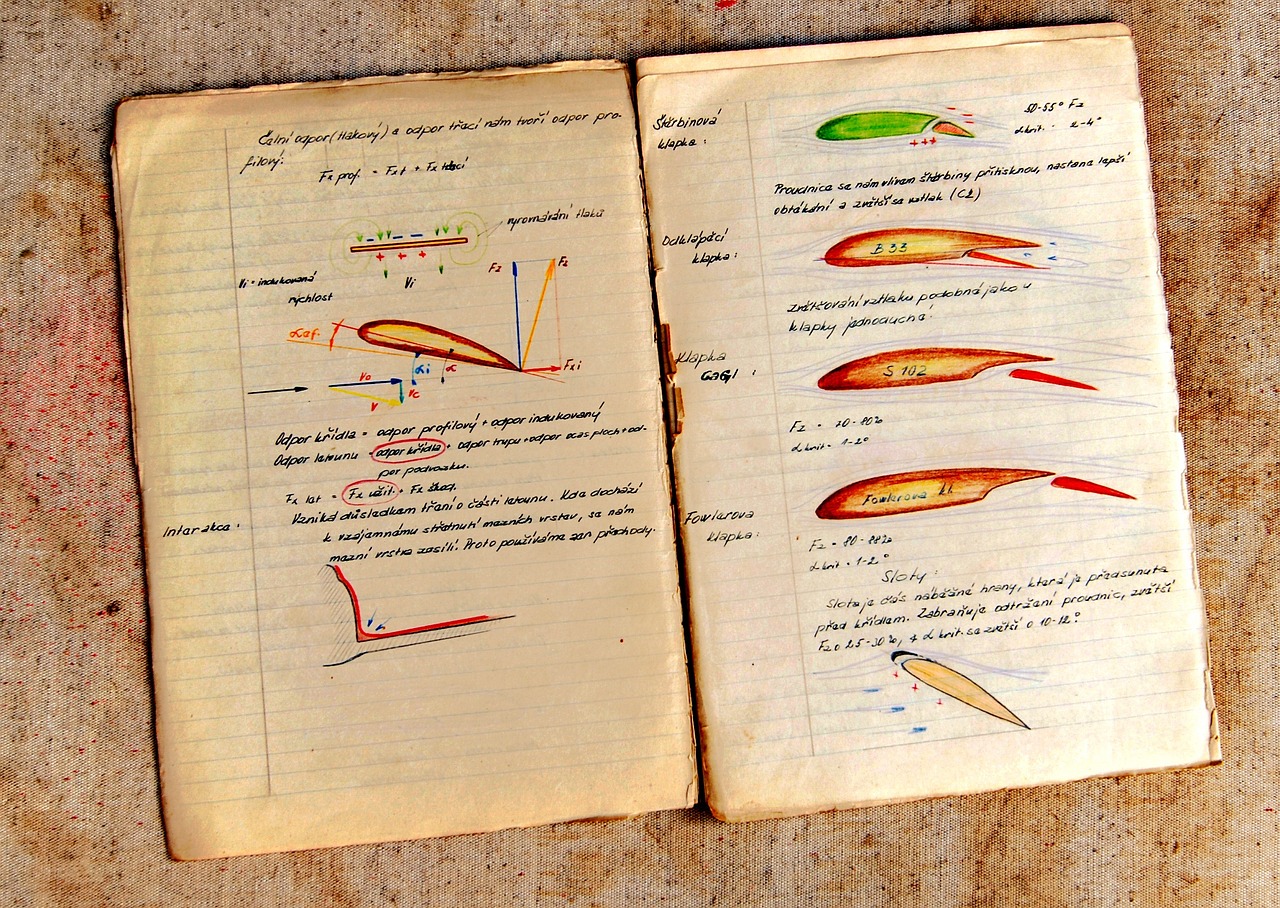 Čelní odpor (tlakový) a odpor třecí nám tvoří odpor pro-
filový:
Fx prof. = Fxt + Fx třecí
vyrovnávání tlaků
Vi = indukovaná
rychlost
Vi
Fz
Fz
αef.
αi
α
Fxi
Vo
Vc
V
Odpor křídla = odpor profilový + odpor indukovaný
Odpor letounu = odpor křídla + odpor trupu + odpor ocas ploch + od-
por podvozku.
Fx let = Fx užit. + Fx škod.
Interakce:
Vzniká důsledkem tření o části letounu. Kde dochází
k vzájemnému střetnutí mezních vrstev, se nám
mezní vrstva zesílí. Proto používáme zen přechody.
Štěrbinová
klapka:
50-55° Fz
αkrit. 2-4°
Proudnice se nám vlivem štěrbiny přitisknou, nastane lepší
obtékání a zvětší se vztlak (Cz)
Odklápěcí
klapka:
B 33
zvětšování vztlaku podobná jako u
klapky jednoduché.
Klapka
GaGl:
S 102
Fz = 70-80%
αkrit = 1-2°
Fowlerova
klapka:
Fowlerova kl.
Fz = 80-88%
αkrit = 1-2°
Sloty:
Slot je část náběžné hrany, která je předsunuta
před křídlem. Zabraňuje odtržení proudnic, zvětší
Fz o 25-30%, + αkrit. se zvětší o 10-12°